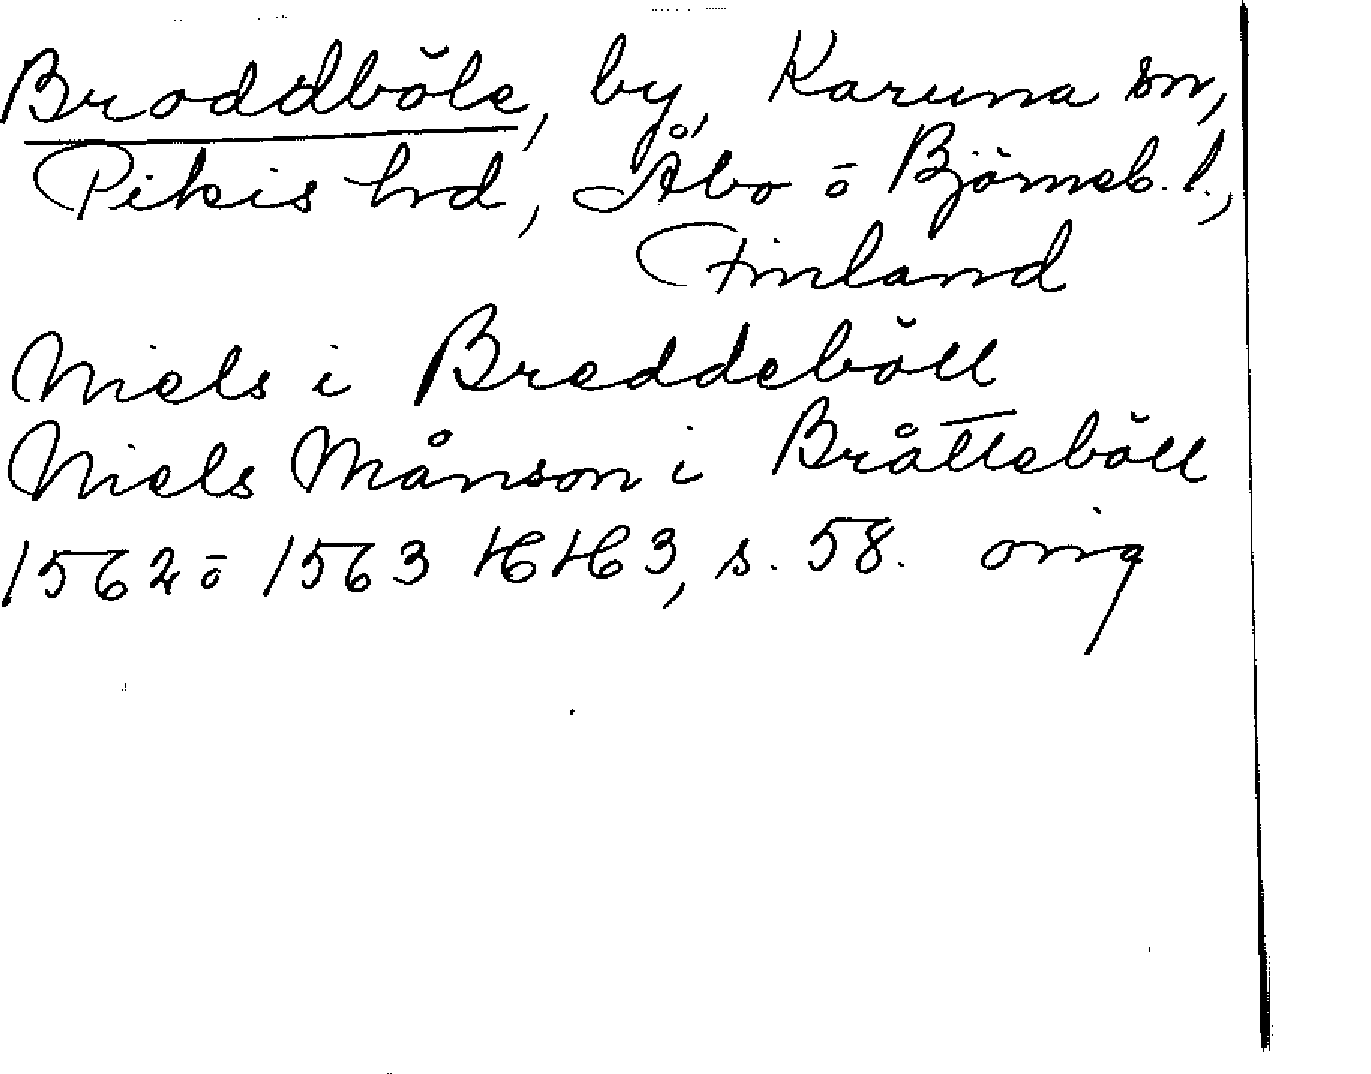 Broddböle, by, Karuna sn,
Pikis hd, Åbo o Björneb. l.,
Finland
Niels i Breddeböll
Niels Månson i Bråtteböll
1562 o 1563 HH 3, s. 58. orig